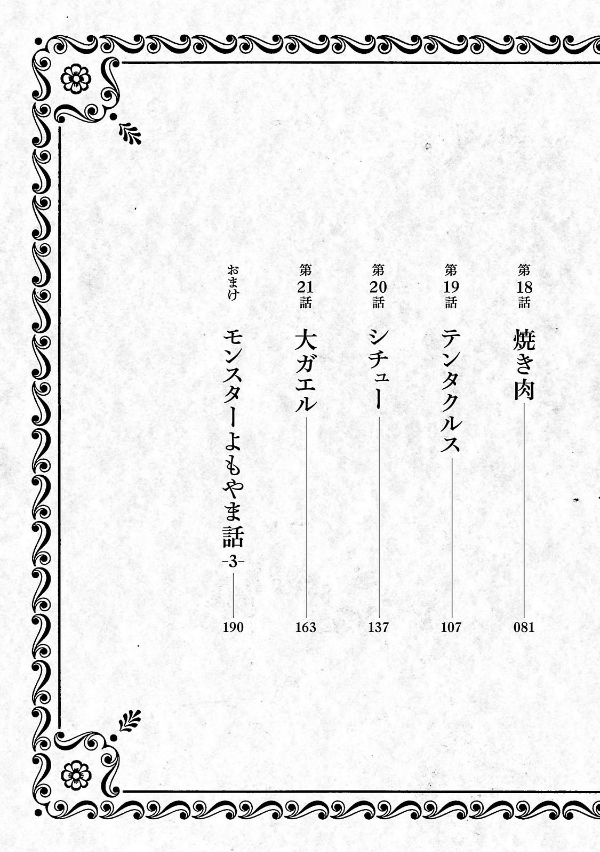 第18話 焼き肉 081
第19話 テンタクルス 107
第20話 シチュー 137
第21話 大ガエル 163
おまけ モンスターよもやま話 -3- 190